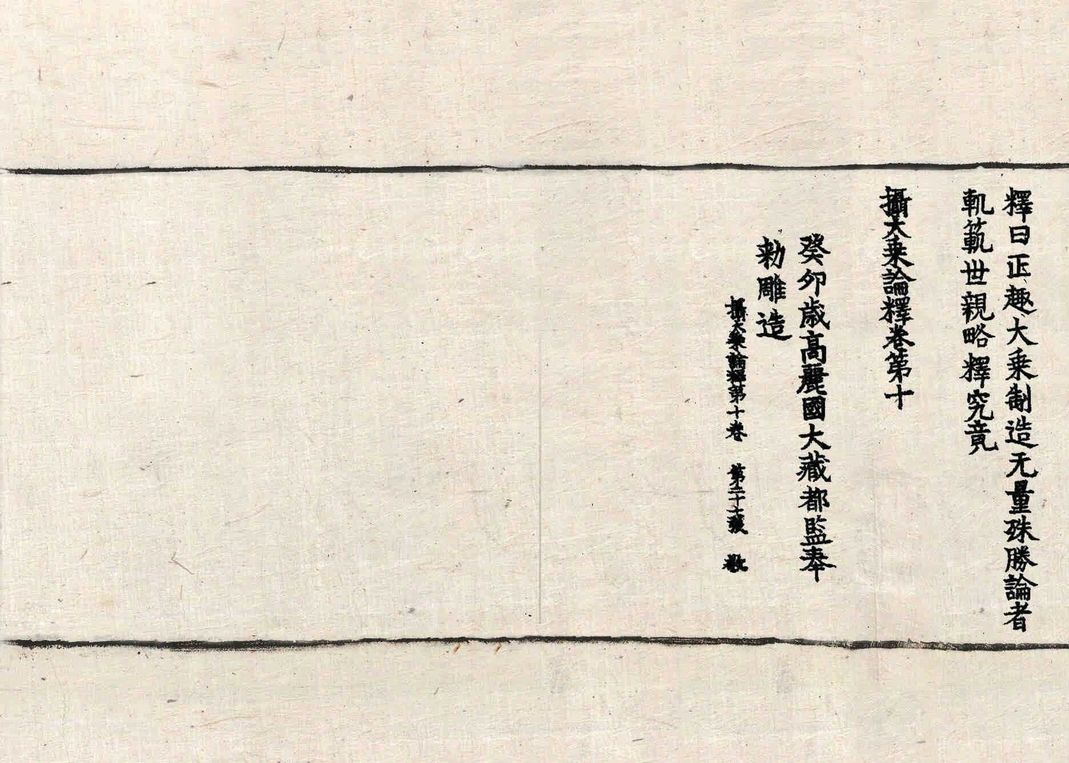 釋曰正趣大乘制造无量殊勝論者
軌範世親略釋究竟
攝大乘論釋卷第十
癸卯歲高麗國大藏都監奉
勅雕造
攝大乘論釋第十卷 第二十七張 敬